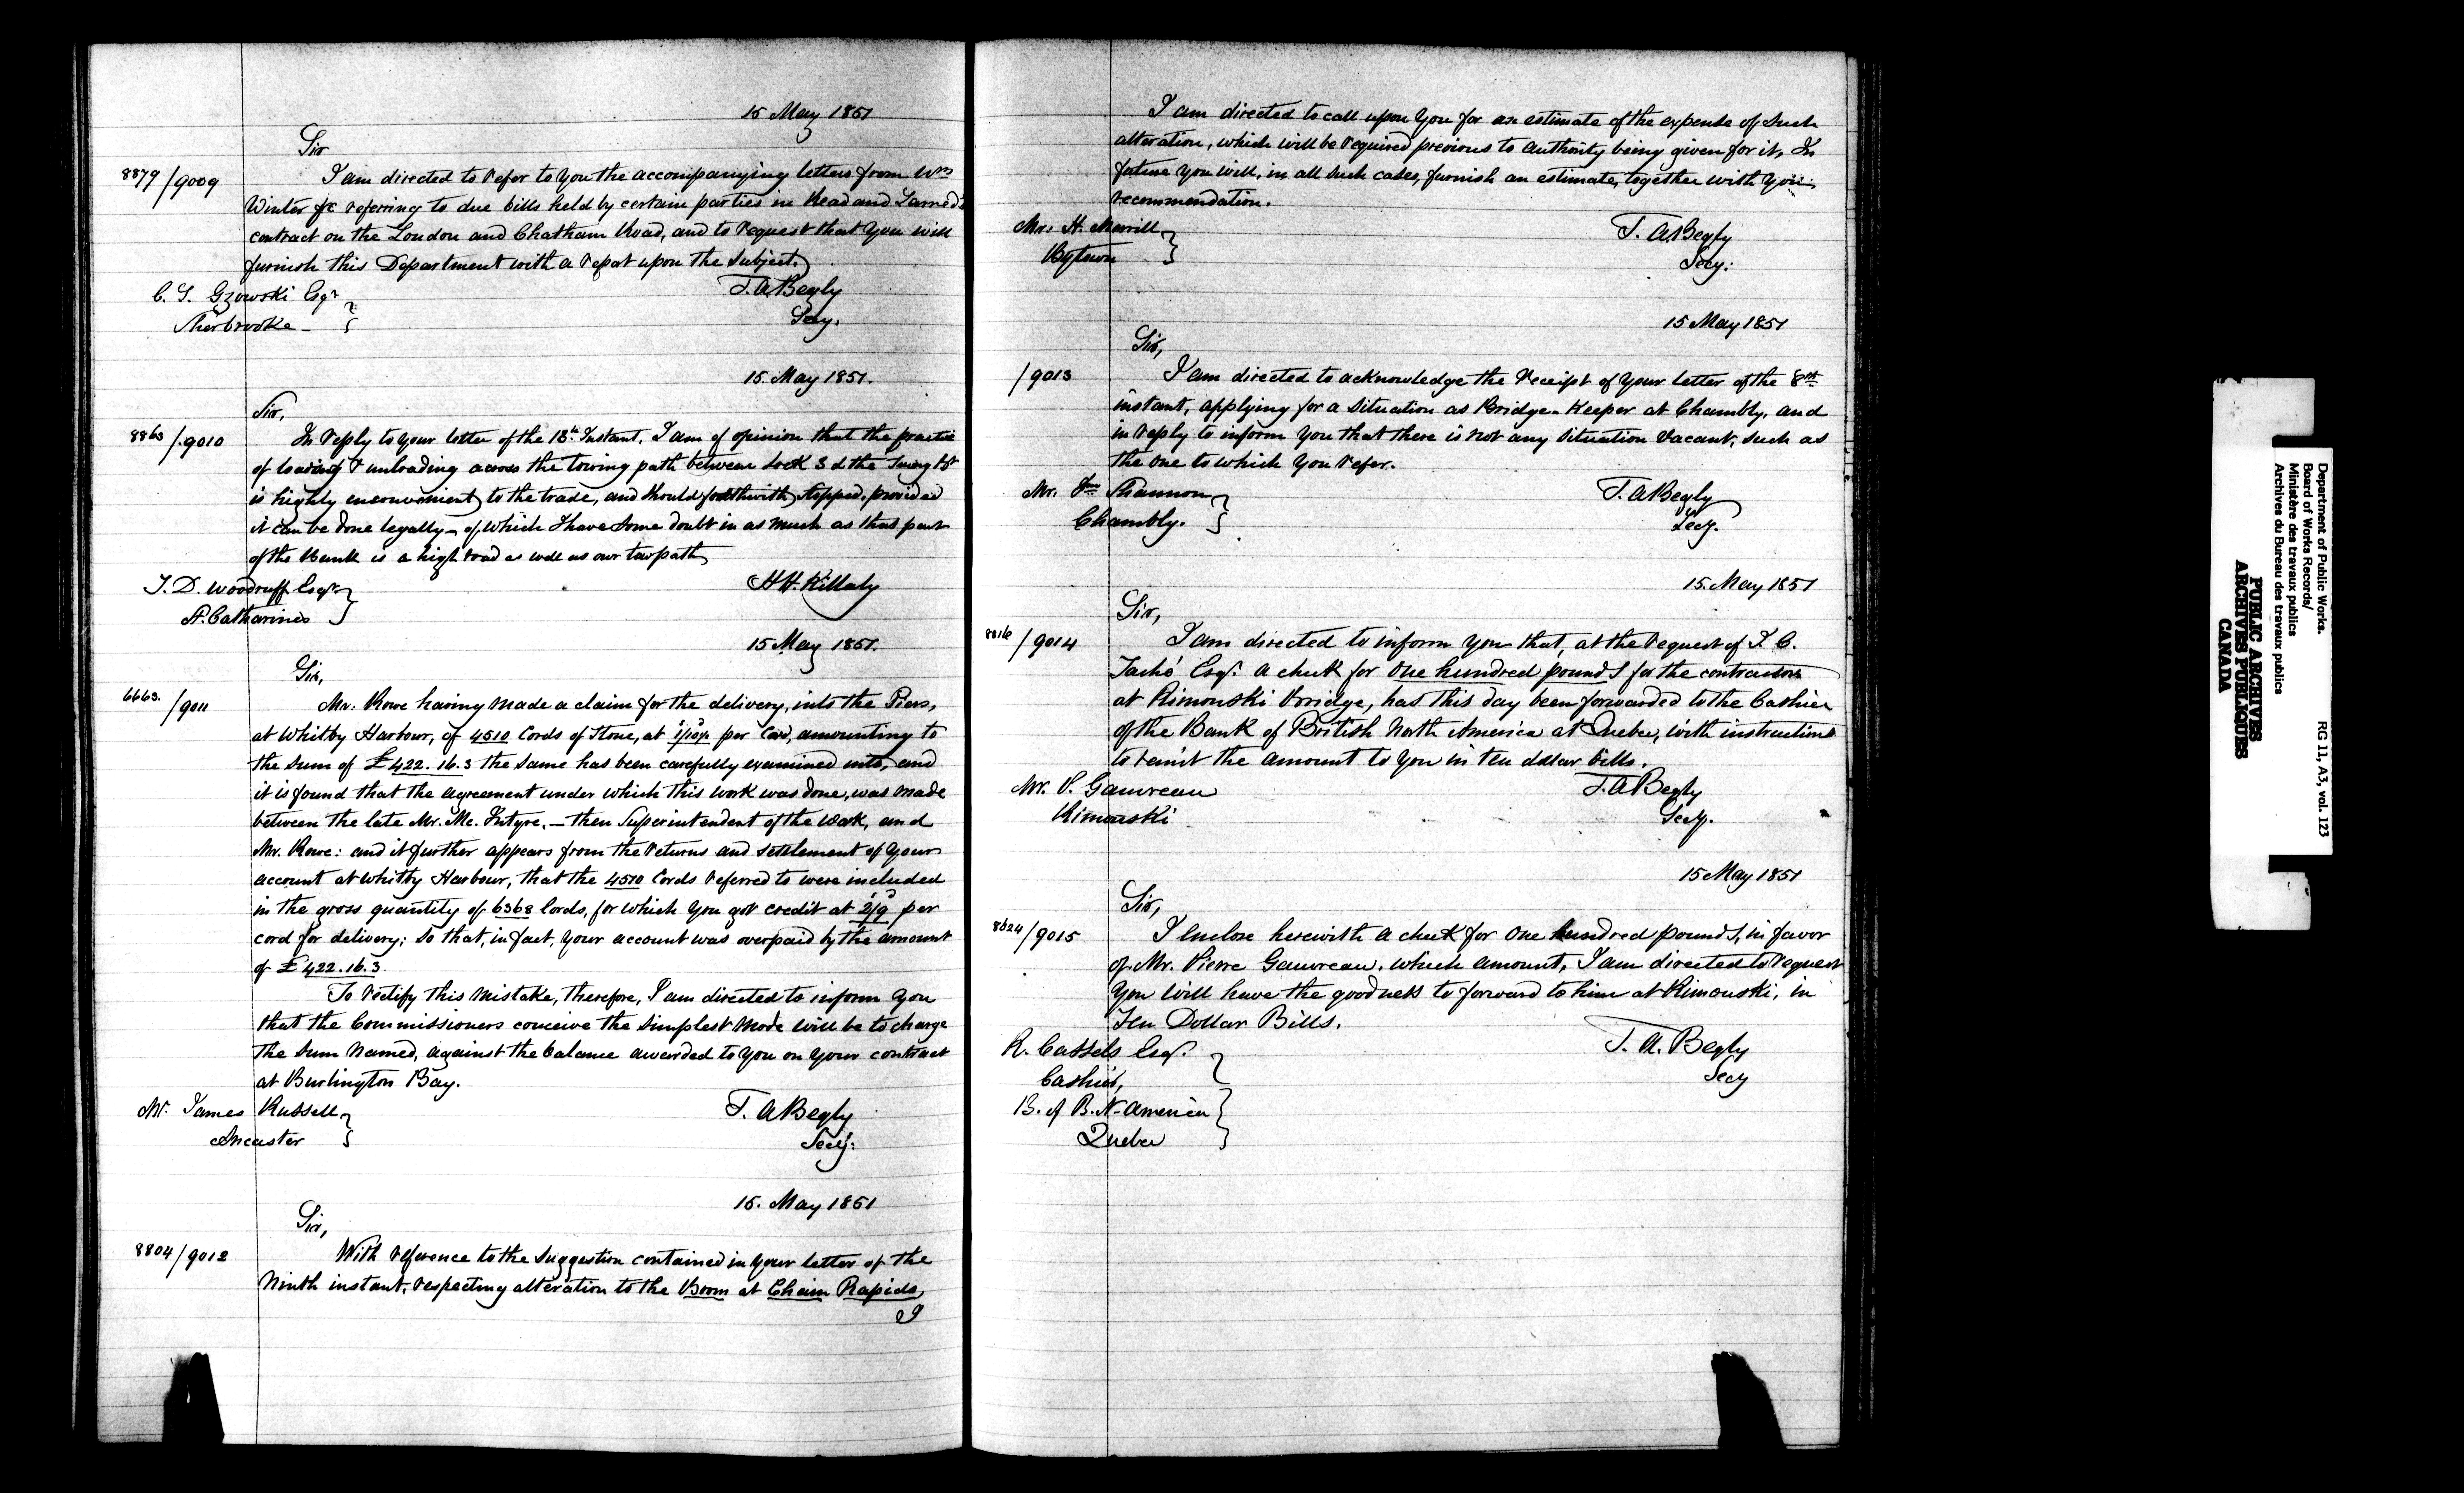 15 May 1851
Sir
8879/9009
I am directed to refer to you the accompanying letters from Wm
Winter &c referring to due bills held by certain parties in Read and Larned's
contract on the London and Chatham Road, and to request that you will
furnish this Department with a repot upon the subject.
C. S. Gzowski Esqr
Sherbrooke
T. A. Begly
Secy.
15 May 1851.
Sir,
8863/9010
In reply to your letter of the 13th Instant, I am of opinion that the practice
of loading & unloading across the towing path between Lock 3 & the Swing
is highly inconvenient to the trade, and should forthwith stopped, provided
it can be done legally – of which I have some doubt in as much as that part
of the Bank is a high road as well as our towpath
S. D. Woodruff Esqr
St. Catharines
H H. Killaly
15 May 1851.
Sir,
6663./9011
Mr. Rowe having made a claim for the delivery, into the Piers,
at Whitby Harbour, of 4510 Cords of Stone, at 1/10½ per Cord, amounting to
the sum of £422. 16. 3 the same has been carefully examined into, and
it is found that the agreement under which this work was done, was made
between the late Mr. Mc. Intyre, – then Superintendent of the Work, and
Mr. Rowe: and it further appears from the returns and settlement of your
account at Whitby Harbour, that the 4510 Cords referred to were included
in the gross quantity of 6368 Cords, for which you got credit at 2/9 per
cord for delivery; so that, in fact, your account was overpaid by the amount
of £422. 16. 3.
To rectify this mistake, therefore, I am directed to inform you
that the Commissioners conceive the simplest mode will be to charge
the sum named, against the balance awarded to you on your contract
at Burlington Bay.
Mr. James Russell
Ancaster
T. A Begly
Secy.
15. May 1851
Sir,
8804/9012
With reference to the suggestion contained in your letter of the
Ninth instant, respecting alteration to the Boom at Chain Rapids,
I
I am directed to call upon you for an estimate of the expense of such
alteration, which will be required previous to authority being given for it. In
future you will, in all such cases, furnish an estimate, together with your
recommendation.
Mr. H. Merrill
Bytown
T. A Begly
Secy.
15 May 1851
Sir,
/9013
I am directed to acknowledge the receipt of your letter of the 8th
instant, applying for a situation as Bridge-Keeper at Chambly, and
in reply to inform you that there is not any situation vacant, such as
the one to which you refer.
Mr. Shannon
Chambly.
T. A Begly
Secy.
15. May 1851
Sir,
8816/9014
I am directed to inform you that, at the request of J. C.
Taché Esqr. a check for one hundred pounds for the contractors
at Rimouski Bridge, has this day been forwarded to the Cashier
of the Bank of British North America at Quebec, with instructions
to remit the amount to you in ten dollar bills.
Mr. P. Gauvreau
Rimouski
T. A Begly
Secy.
15 May 1851
Sir,
8824/9015
I enclose herewith a check for one hundred pounds, in favor
of Mr. Pierre Gauvreau, which amount, I am directed to request
you will have the goodness to forward to him at Rimouski, in
Ten Dollar Bills.
R. Cassels Esqr.
Cashier,
B. of B. N. America
Quebec
T. A. Begly
Secy
Department of Public Works.
Board of Works Records/
Ministère des travaux publics
Archives du Bureau des travaux publics
RG 11, A3, vol. 123
PUBLIC ARCHIVES
ARCHIVES PUBLIQUES
CANADA